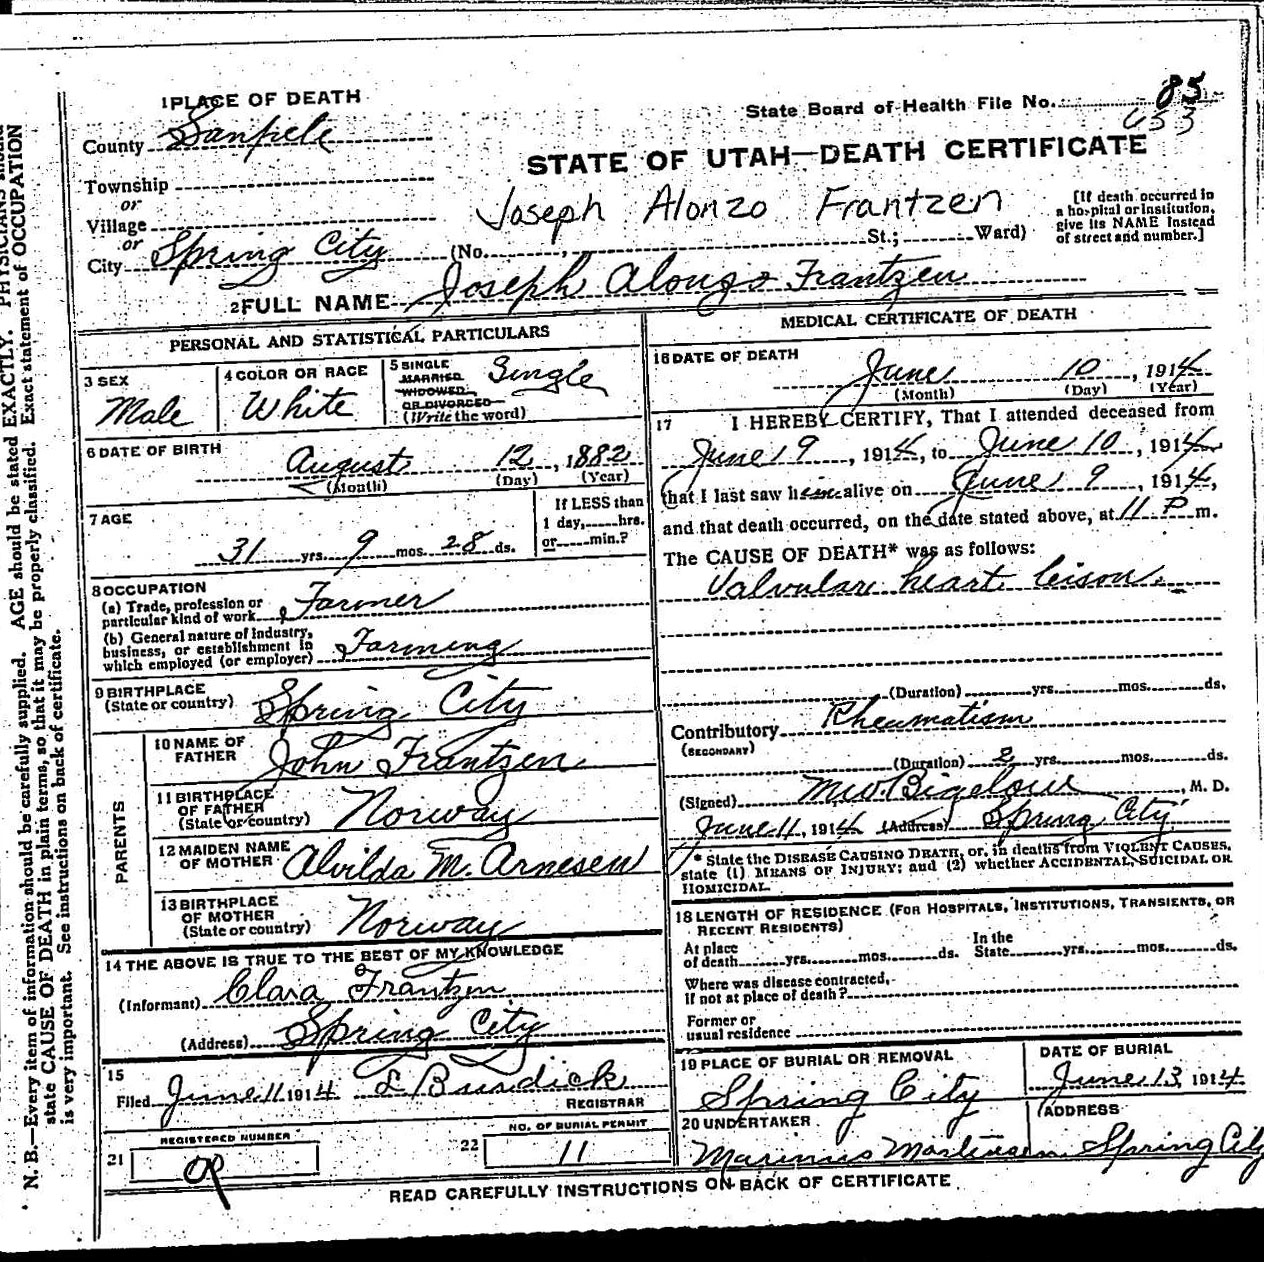 1 PLACE OF DEATH
State Board of Health File No. 85
653
County Sanpete
STATE OF UTAH—DEATH CERTIFICATE
Township
or
Village
or
City Spring City
Joseph Alonzo Frantzen
(No. St.; Ward)
[If death occurred in
a hospital or institution,
give its NAME instead
of street and number.]
2 FULL NAME Joseph Alonzo Frantzen
PERSONAL AND STATISTICAL PARTICULARS
3 SEX
Male
4 COLOR OR RACE
White
5 SINGLE
MARRIED
WIDOWED
OR DIVORCED
(Write the word)
Single
6 DATE OF BIRTH
August 12, 1882
(Month) (Day) (Year)
7 AGE
31 yrs. 9 mos. 28 ds.
If LESS than
1 day, hrs.
or min.?
8 OCCUPATION
(a) Trade, profession or
particular kind of work Farmer
(b) General nature of industry,
business, or establishment in
which employed (or employer) Farming
9 BIRTHPLACE
(State or country) Spring City
PARENTS
10 NAME OF
FATHER John Frantzen
11 BIRTHPLACE
OF FATHER
(State or country) Norway
12 MAIDEN NAME
OF MOTHER Alvilda M. Arnesen
13 BIRTHPLACE
OF MOTHER
(State or country) Norway
14 THE ABOVE IS TRUE TO THE BEST OF MY KNOWLEDGE
(Informant) Clara Frantzen
(Address) Spring City
15
Filed June 11 1914 L Burdick
REGISTRAR
REGISTERED NUMBER
21
NO. OF BURIAL PERMIT
22 11
MEDICAL CERTIFICATE OF DEATH
16 DATE OF DEATH
June 10, 1914
(Month) (Day) (Year)
17 I HEREBY CERTIFY, That I attended deceased from
June 9, 1914, to June 10, 1914
that I last saw him alive on June 9, 1914,
and that death occurred, on the date stated above, at 11 P m.
The CAUSE OF DEATH* was as follows:
Valvular heart leison.
(Duration) yrs. mos. ds.
Contributory Rheumatism
(SECONDARY)
(Duration) 2 yrs. mos. ds.
(Signed) M.W. Bigelow, M. D.
June 11, 1914 (Address) Spring City
* State the DISEASE CAUSING DEATH, or, in deaths from VIOLENT CAUSES,
state (1) MEANS OF INJURY; and (2) whether ACCIDENTAL, SUICIDAL OR
HOMICIDAL.
18 LENGTH OF RESIDENCE (FOR HOSPITALS, INSTITUTIONS, TRANSIENTS, OR
RECENT RESIDENTS)
At place
of death yrs. mos. ds.
In the
State yrs. mos. ds.
Where was disease contracted,
if not at place of death?
Former or
usual residence
19 PLACE OF BURIAL OR REMOVAL
Spring City
DATE OF BURIAL
June 13, 1914
20 UNDERTAKER
Marinus Mortensen
ADDRESS
Spring City
READ CAREFULLY INSTRUCTIONS ON BACK OF CERTIFICATE
N. B.—Every item of information should be carefully supplied. AGE should be stated EXACTLY. PHYSICIANS should
state CAUSE OF DEATH in plain terms, so that it may be properly classified. Exact statement of OCCUPATION
is very important. See instructions on back of certificate.